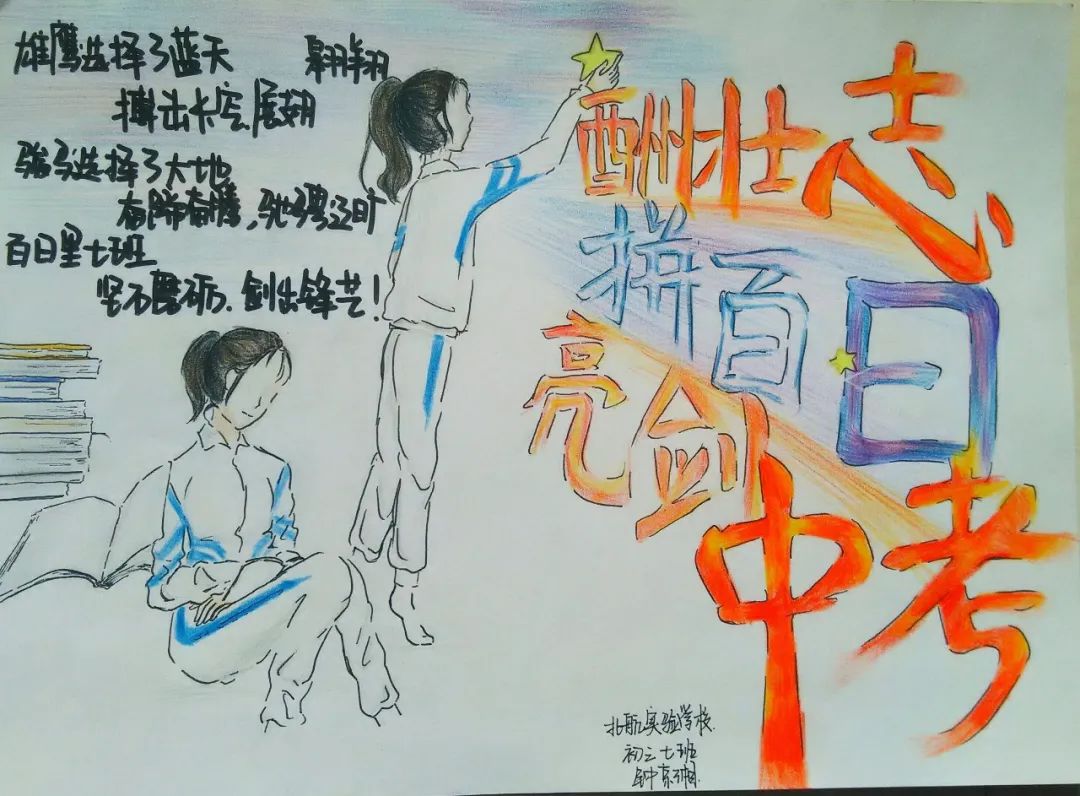 雄鹰选择了蓝天 翱翔
搏击长空,展翅
骏马选择了大地
奋蹄奔腾,驰骋辽旷
百日里七班
坚石磨砺、剑出锋芒!
酬壮志
拼百日
亮剑
中考
北航实验学校
初三七班